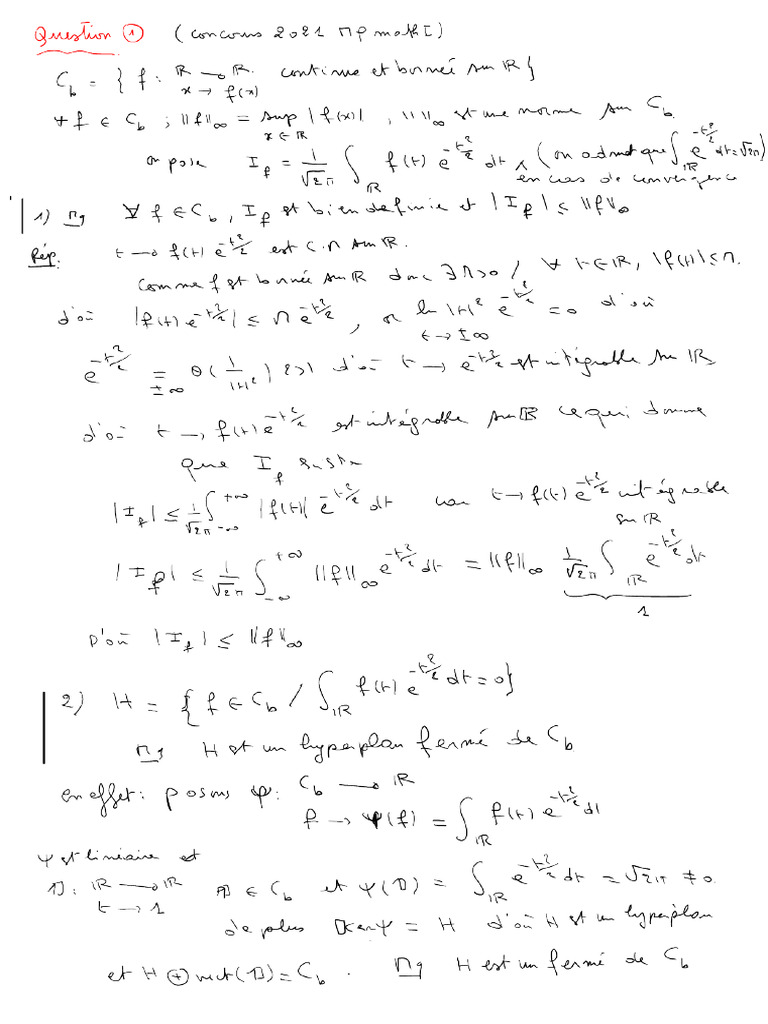 Question ① (concours 2021 MP math I)
C_b = { f : ℝ → ℝ, x → f(x) continue et bornée sur ℝ }
∀ f ∈ C_b ; ‖f‖_∞ = sup_{x ∈ ℝ} |f(x)| , ‖ ‖_∞ est une norme sur C_b
on pose I_f = 1/√2π ∫_ℝ f(t) e^{-t²/2} dt (on admet que ∫_ℝ e^{-t²/2} dt = √2π)
en cas de convergence
1) Mq ∀ f ∈ C_b, I_f est bien définie et |I_f| ≤ ‖f‖_∞
Rép: t → f(t) e^{-t²/2} est c.m sur ℝ.
Comme f est bornée sur ℝ donc ∃ M>0 / ∀ t ∈ ℝ, |f(t)| ≤ M.
d'où |f(t) e^{-t²/2}| ≤ M e^{-t²/2}, or lim_{t → ±∞} |t|² e^{-t²/2} = 0 d'où
e^{-t²/2} =_{±∞} o(1/|t|²) 2>1 d'où t → e^{-t²/2} est intégrable sur ℝ
d'où t → f(t) e^{-t²/2} est intégrable sur ℝ ce qui donne
que I_f existe
|I_f| ≤ 1/√2π ∫_{-∞}^{+∞} |f(t)| e^{-t²/2} dt car t → f(t) e^{-t²/2} intégrable
sur ℝ
|I_f| ≤ 1/√2π ∫_{-∞}^{+∞} ‖f‖_∞ e^{-t²/2} dt = ‖f‖_∞ 1/√2π ∫_ℝ e^{-t²/2} dt
1
D'où |I_f| ≤ ‖f‖_∞
2) H = { f ∈ C_b / ∫_ℝ f(t) e^{-t²/2} dt = 0 }
Mq H est un hyperplan fermé de C_b
en effet : posons ψ : C_b → ℝ
f → ψ(f) = ∫_ℝ f(t) e^{-t²/2} dt
ψ est linéaire et
𝟙 : ℝ → ℝ, t → 1 𝟙 ∈ C_b et ψ(𝟙) = ∫_ℝ e^{-t²/2} dt = √2π ≠ 0.
de plus Ker ψ = H d'où H est un hyperplan
et H ⊕ vect(𝟙) = C_b . Mq H est un fermé de C_b